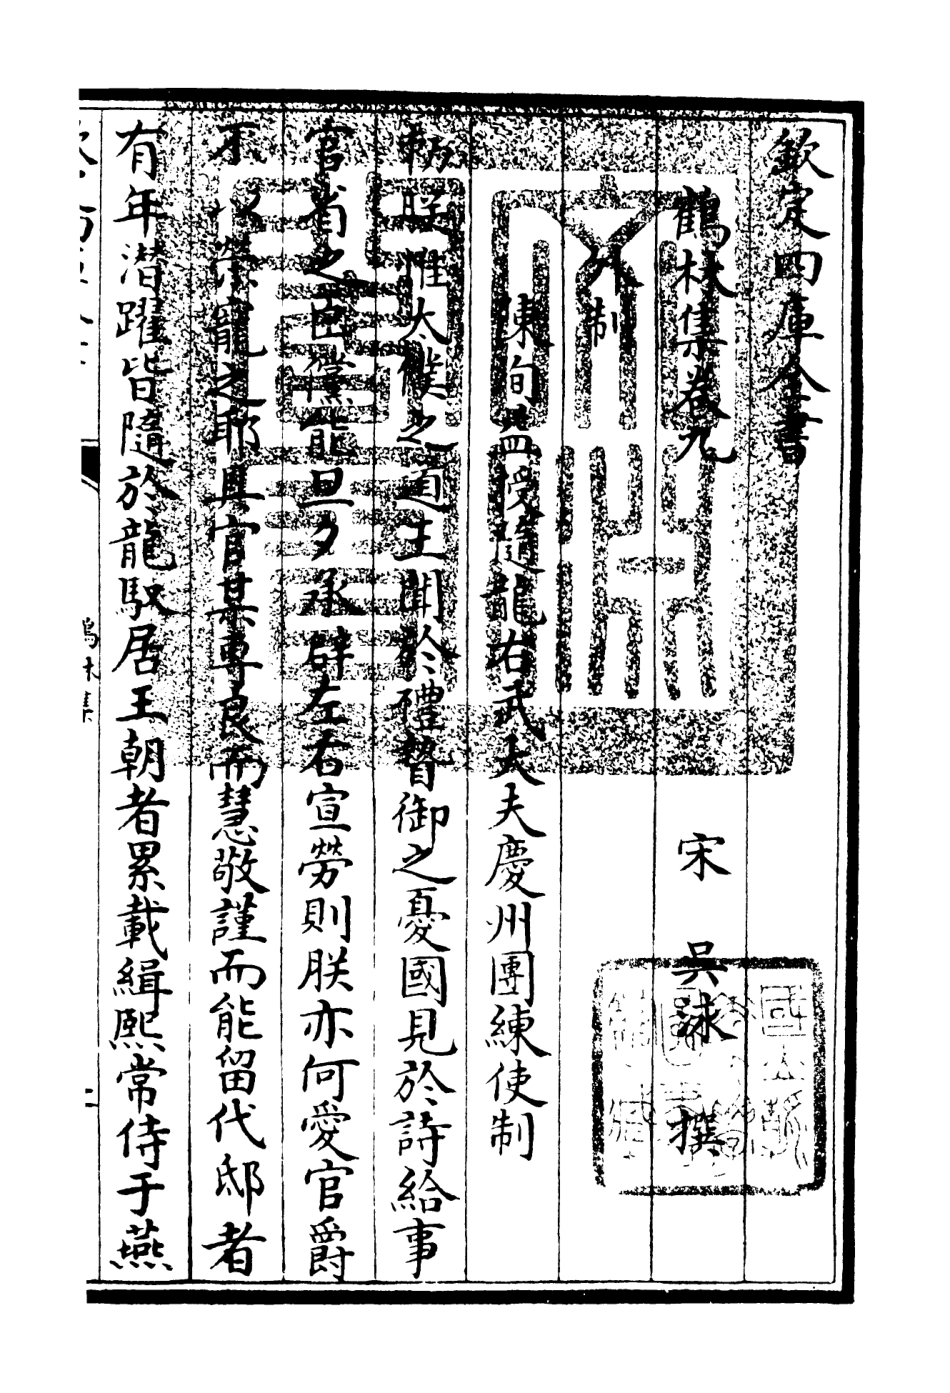 欽定四庫全書
鶴林集卷九
宋 吳泳 撰
外制
陳恂益授隨龍右武大夫慶州團練使制
勅朕惟太僕之直主聞於禮督御之憂國見於詩給事
官省之臣儻能旦夕承辟左右宣勞則朕亦何愛官爵
不以榮寵之耶具官某專良而慧敬謹而能留代邸者
有年潛躍皆隨於龍馭居王朝者累載緝熙常侍于燕